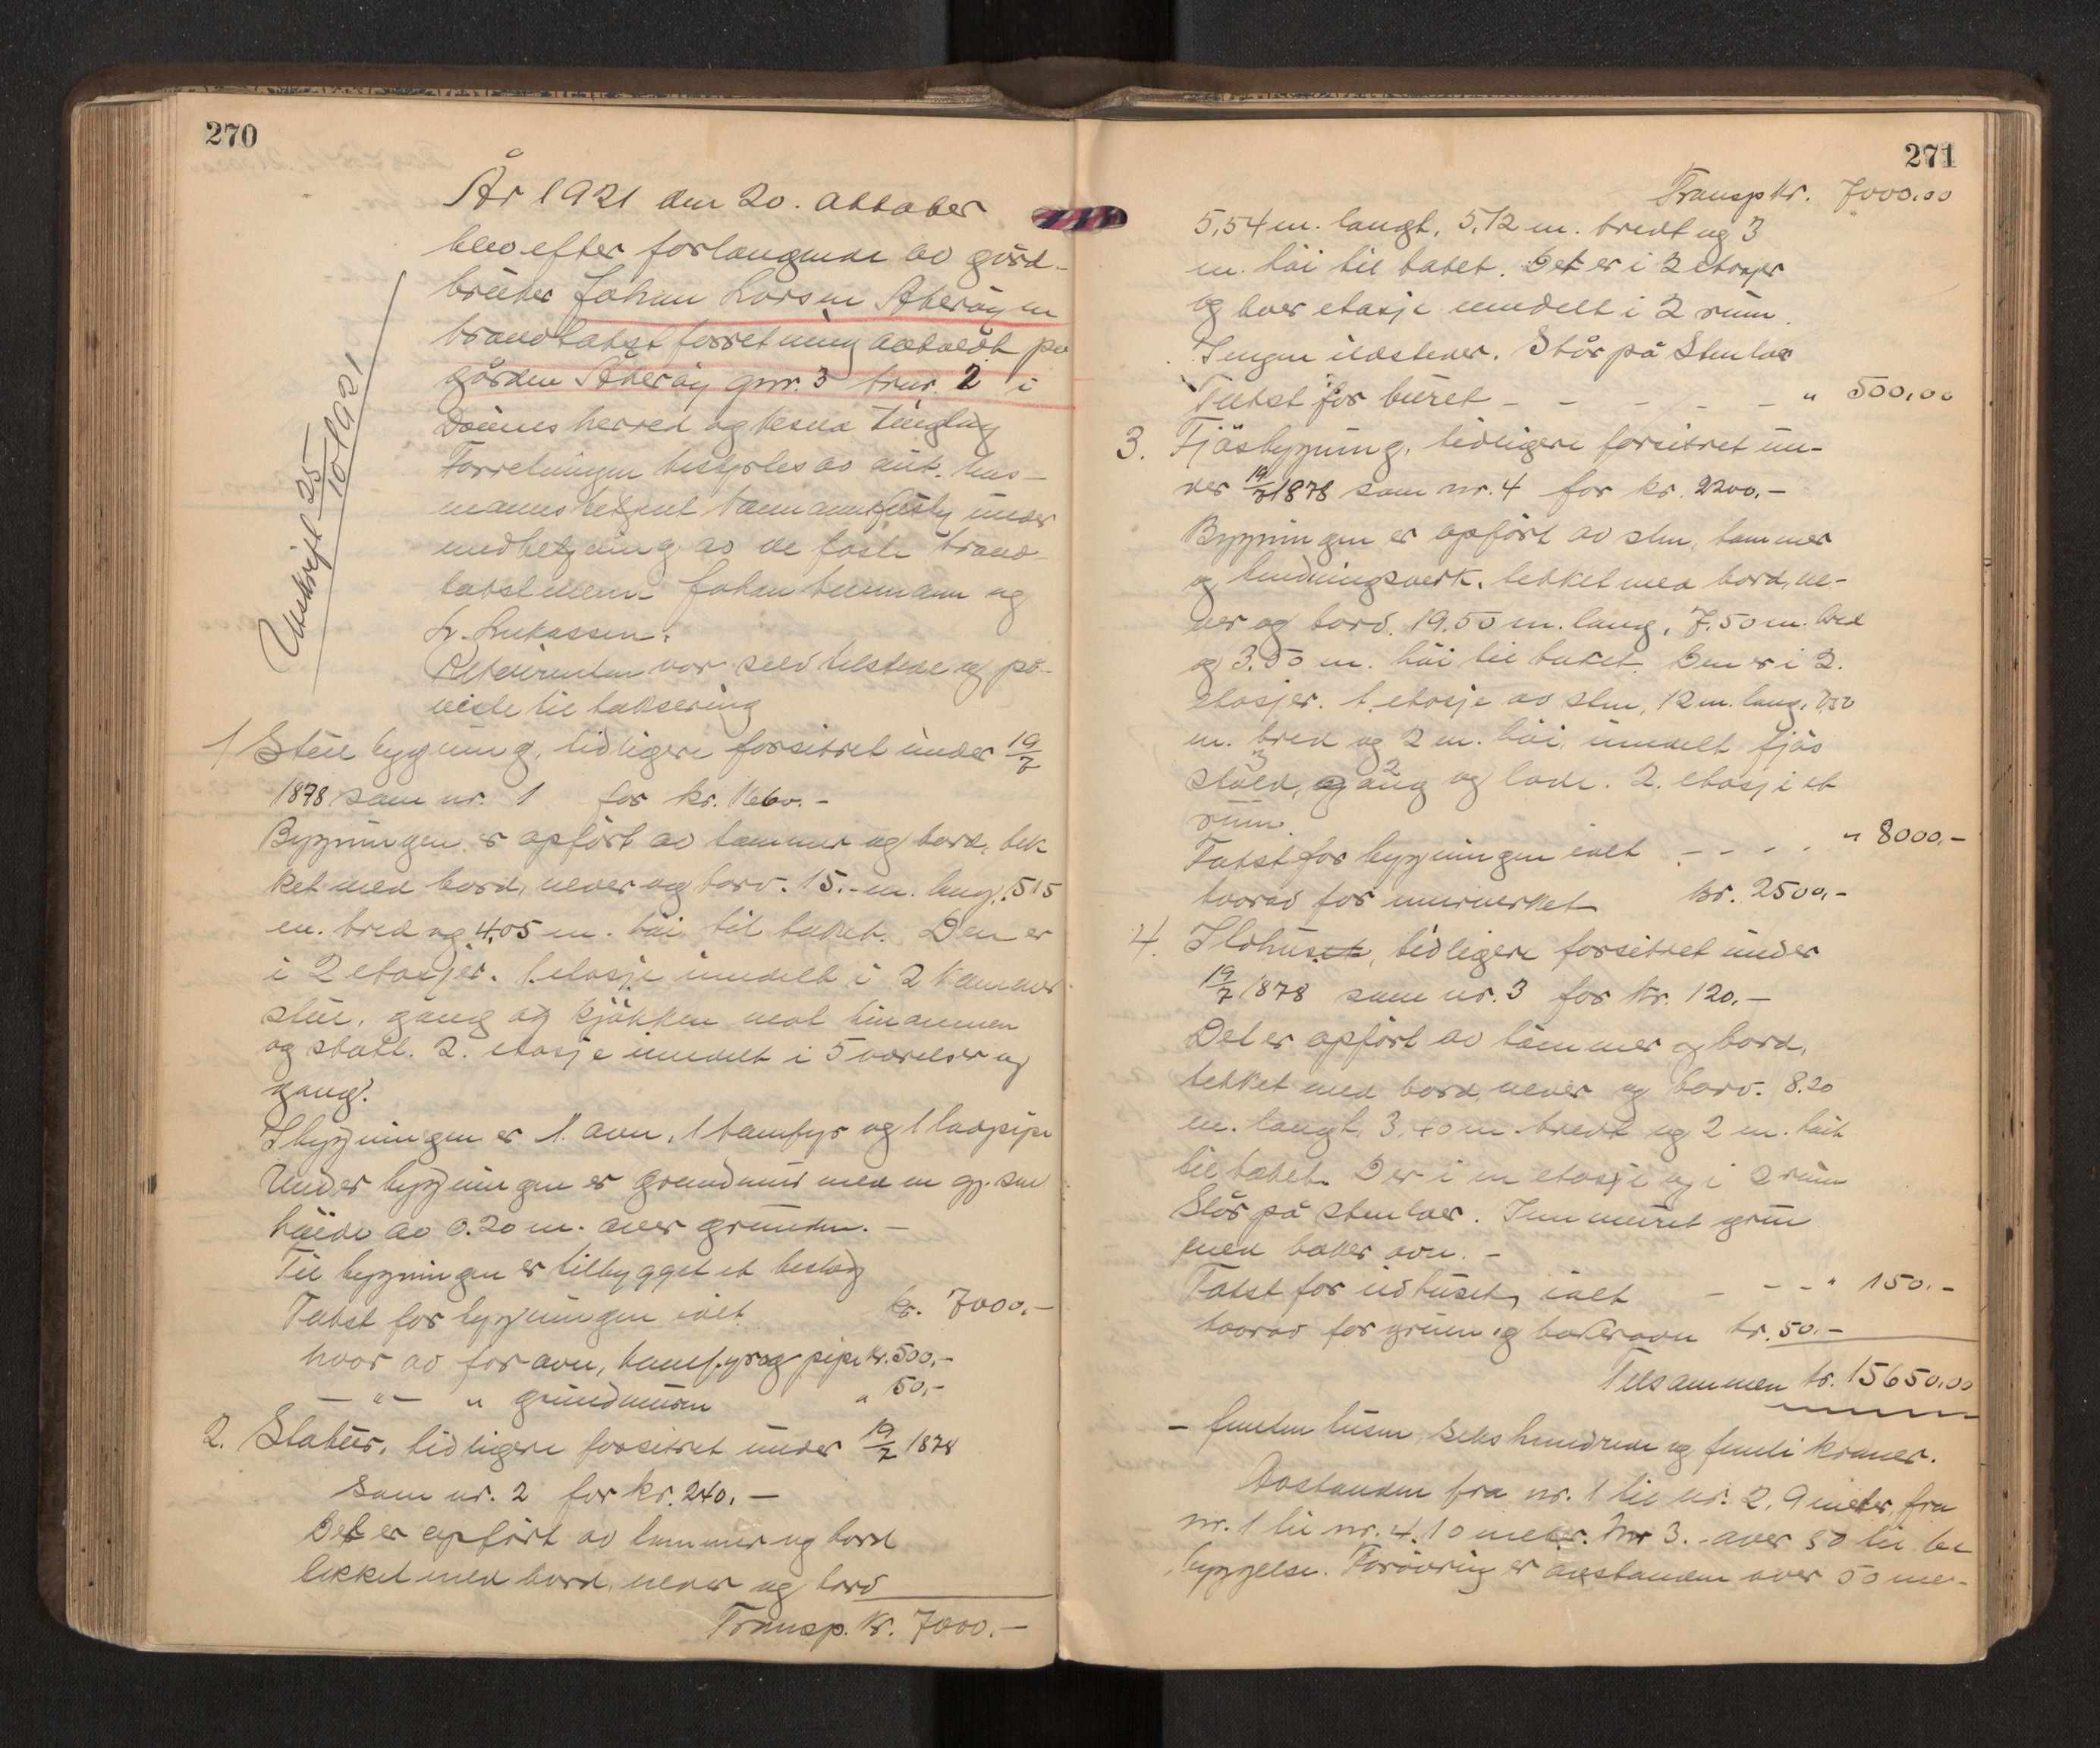 270
År 1921 den 20. oktober
blev efter forlangende av gård-
bruker Johan Larsen Åkerøyen
brandtakstforretning avholdt på
gården Åkerøy gnr. 3 brnr. 2 i
Dönnes herred og Nesna tinglag
Forretningen bestyrles av aut. lens-
mannsbetjent under
medbetjening av de faste brand-
takstmenn Johan og
L. Lukassen.
Rekvirenten var selv tilstede og på-
viste til taksering
Utskrift 25/10 1921
1 Stue bygning, tidligere forsikret under 19/7
1878 som nr. 1 for kr. 1660.-
Bygningen er opfört av tømmer og bord, tek
ket med bord, never og torv. 15.- m. lang, 515
m. bred og 4,05 m. höi til taket. Den er
i 2 etasjer. 1. etasje inndelt i 2 kammer
stue, gang og kjökken med
og 2. etasje inndelt i 5 værelser og
gang.
I bygningen er 1 ovn, 1 komfyr og 1 pipe
Under bygningen er grundmur med en gj. sn.
höide av 0.20 m. over grunden. -
Til bygningen er tilbygget et beslag
Takst for bygningen ialt kr. 7000.-
hvor av for ovn, komfyr og pipe kr. 500.-
- " - " grundmuren " 50.-
2. Stabur, tidligere forsikret under 19/7 1878
som nr. 2 for kr. 240. -
Det er opfört av tømmer og bord
tekket med bord, never og torv
Transp. kr. 7000. -
271
Transp kr. 7000.00
5,54 m. langt, 5,12 m. bredt og 3
m. höi til taket. Det er i 2 etasjer
og hver etasje inndelt i 2 rum.
Ingen ildsteder. Står på
Takst for buret - - - - - " 500,00
3. Fjösbygning, tidligere forsikret un-
der 19/7 1878 som nr. 4 for kr. 2200.-
Bygningen er opfört av sten, tømmer
og bindningsverk, tekket med bord, ne-
ver og torv. 19.50 m. lang, 7.50 m. bred
og 3.50 m. höi til taket. Den er i 2.
etasjer. 1. etasje av sten, 12 m. lang, 7,50
m. bred og 2 m. höi, inndelt fjös
stald, gang og lade. 2. etasje et
rum.
Takst for bygningen ialt - - - - " 8000.-
hvorav for murverket kr. 2500.-
4. Ildhuset, tidligere forsikret under
19/7 1878 som nr. 3 for kr. 120.-
Det er opfört av tømmer og bord,
tekket med bord, never og torv. 8.20
m. langt, 3.40 m. bredt og 2 m. höit
til taket. Der i en etasje og i 2 rum
Står på. Inn muret grue
med baker ovn. -
Takst for ildhuset, ialt - - - " 150.-
hvorav for gruen og bakerovn kr. 50.-
Tilsammen kr. 15650.00
- femten tusen seks hundrede og femti kroner.
Avstanden fra nr. 1 til nr. 2, 9 meter, fra
nr. 1 til nr. 4, 10 meter. Nr 3. over 50 til be
byggelse. Forøvrig er avstanden over 50 me-